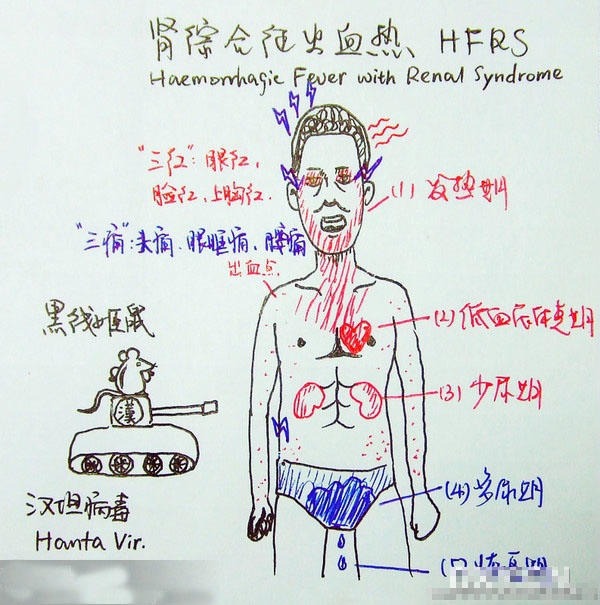 肾综合征出血热 HFRS
Haemorrhagic Fever with Renal Syndrome
"三红": 眼红,
脸红, 上胸红.
(1) 发热期
"三痛": 头痛、眼眶痛、腰痛
出血点
黑线姬鼠
(2) 低血压休克期
(3) 少尿期
漢
(4) 多尿期
汉坦病毒
Hanta Vir.